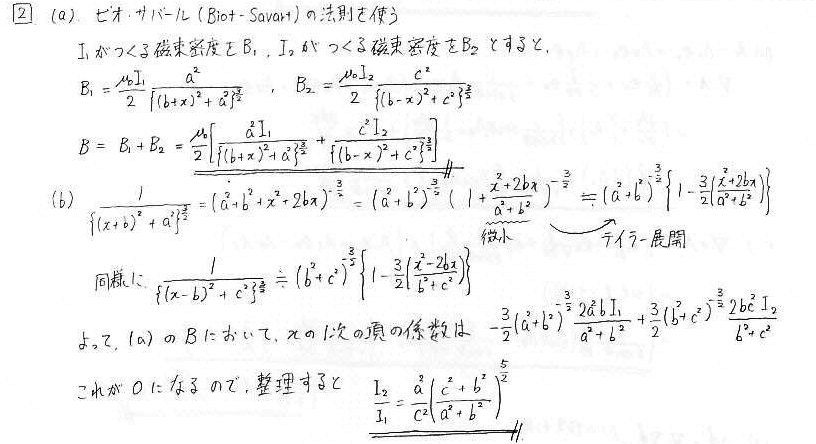 2 (a) ビオ・サバール (Biot-Savart) の法則を使う
I₁がつくる磁束密度をB₁, I₂がつくる磁束密度をB₂とすると,
B₁ = μ₀I₁/2 a²/{(b+x)²+a²}^{3/2} , B₂ = μ₀I₂/2 c²/{(b-x)²+c²}^{3/2}
B = B₁+B₂ = μ₀/2 [ a²I₁/{(b+x)²+a²}^{3/2} + c²I₂/{(b-x)²+c²}^{3/2} ]
(b) 1/{(x+b)²+a²}^{3/2} = (a²+b²+x²+2bx)^{-3/2} = (a²+b²)^{-3/2} (1+ (x²+2bx)/(a²+b²))^{-3/2} ≒ (a²+b²)^{-3/2} {1-3/2((x²+2bx)/(a²+b²))}
微小 テイラー展開
同様に, 1/{(x-b)²+c²}^{3/2} ≒ (b²+c²)^{-3/2} {1-3/2((x²-2bx)/(b²+c²))}
よって, (a)のBにおいて, xの1次の項の係数は -3/2(a²+b²)^{-3/2} 2a²bI₁/(a²+b²) + 3/2(b²+c²)^{-3/2} 2bc²I₂/(b²+c²)
これが0になるので, 整理すると I₂/I₁ = a²/c² ((c²+b²)/(a²+b²))^{5/2}